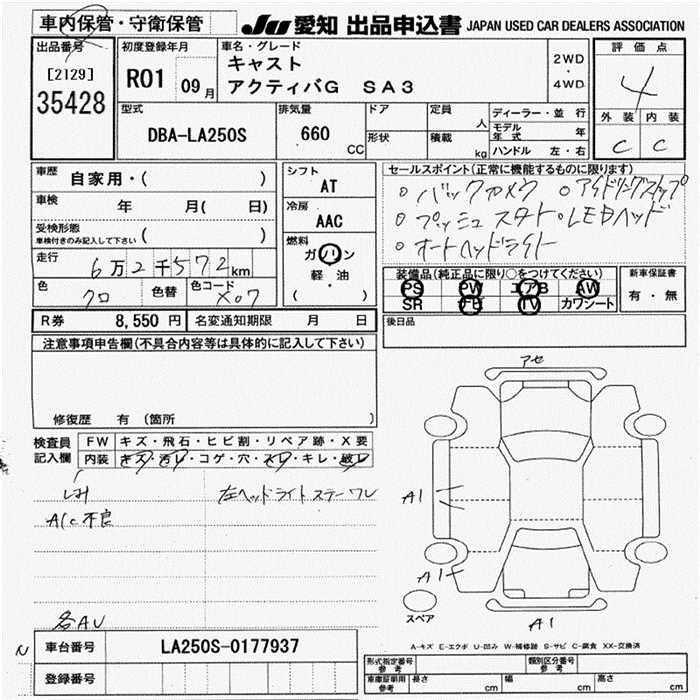 車内保管・守衛保管
JU 愛知 出品申込書 JAPAN USED CAR DEALERS ASSOCIATION
出品番号
[2129]
35428
初度登録年月
R01 09月
車名・グレード
キャスト
アクティバG SA3
2WD
・
4WD
評価点
4
外装 内装
C C
型式
DBA-LA250S
排気量
660 CC
ドア
形状
定員 人
積載 kg
ディーラー・並行
モデル年式 年
ハンドル 左・右
車歴
自家用・( )
車検 年 月( 日)
受検形態
車検付きのみ記入して下さい ( )
走行
6万2千572km
色
クロ
色替
色コード
X07
シフト
AT
冷房
AAC
燃料
ガソリン
軽・油
( )
セールスポイント(正常に機能するものに限ります)
○バックカメラ ○アイドリングストップ
○プッシュスタート ○LEDヘッド
○オートヘッドライト
装備品(純正品に限り○をつけてください)
PS PW エアB AW
SR ナビ TV カワシート
新車保証書
有・無
後日品
R券 8,550円 名変通知期限 月 日
注意事項申告欄(不具合内容等は具体的に記入して下さい)
修復歴 有 (箇所 )
検査員記入欄
FW キズ・飛石・ヒビ割・リペア跡・X要
内装 キズ・汚レ・コゲ・穴・スレ・キレ・破レ
シミ
A/C不良
左ヘッドライトステーワレ
各AU
アセ
A1
A1
A1
スペア
A-キズ E-エクボ U-凹み W-補修跡 S-サビ C-腐食 XX-交換済
N
車台番号 LA250S-0177937
登録番号
形式指定番号参考
類別区分番号参考
車庫証明用参考 長さ cm 幅 cm 高さ cm